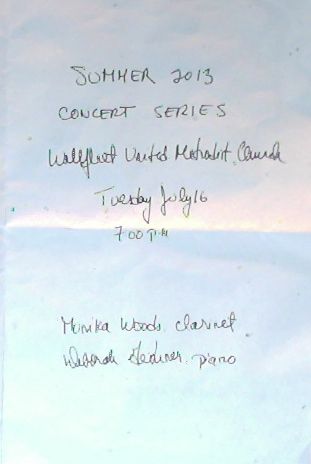 SUMMER 2013
CONCERT SERIES
Wellfleet United Methodist Church
Tuesday July 16
7 00 P.M
Monika Woods. clarinet
Deborah piano